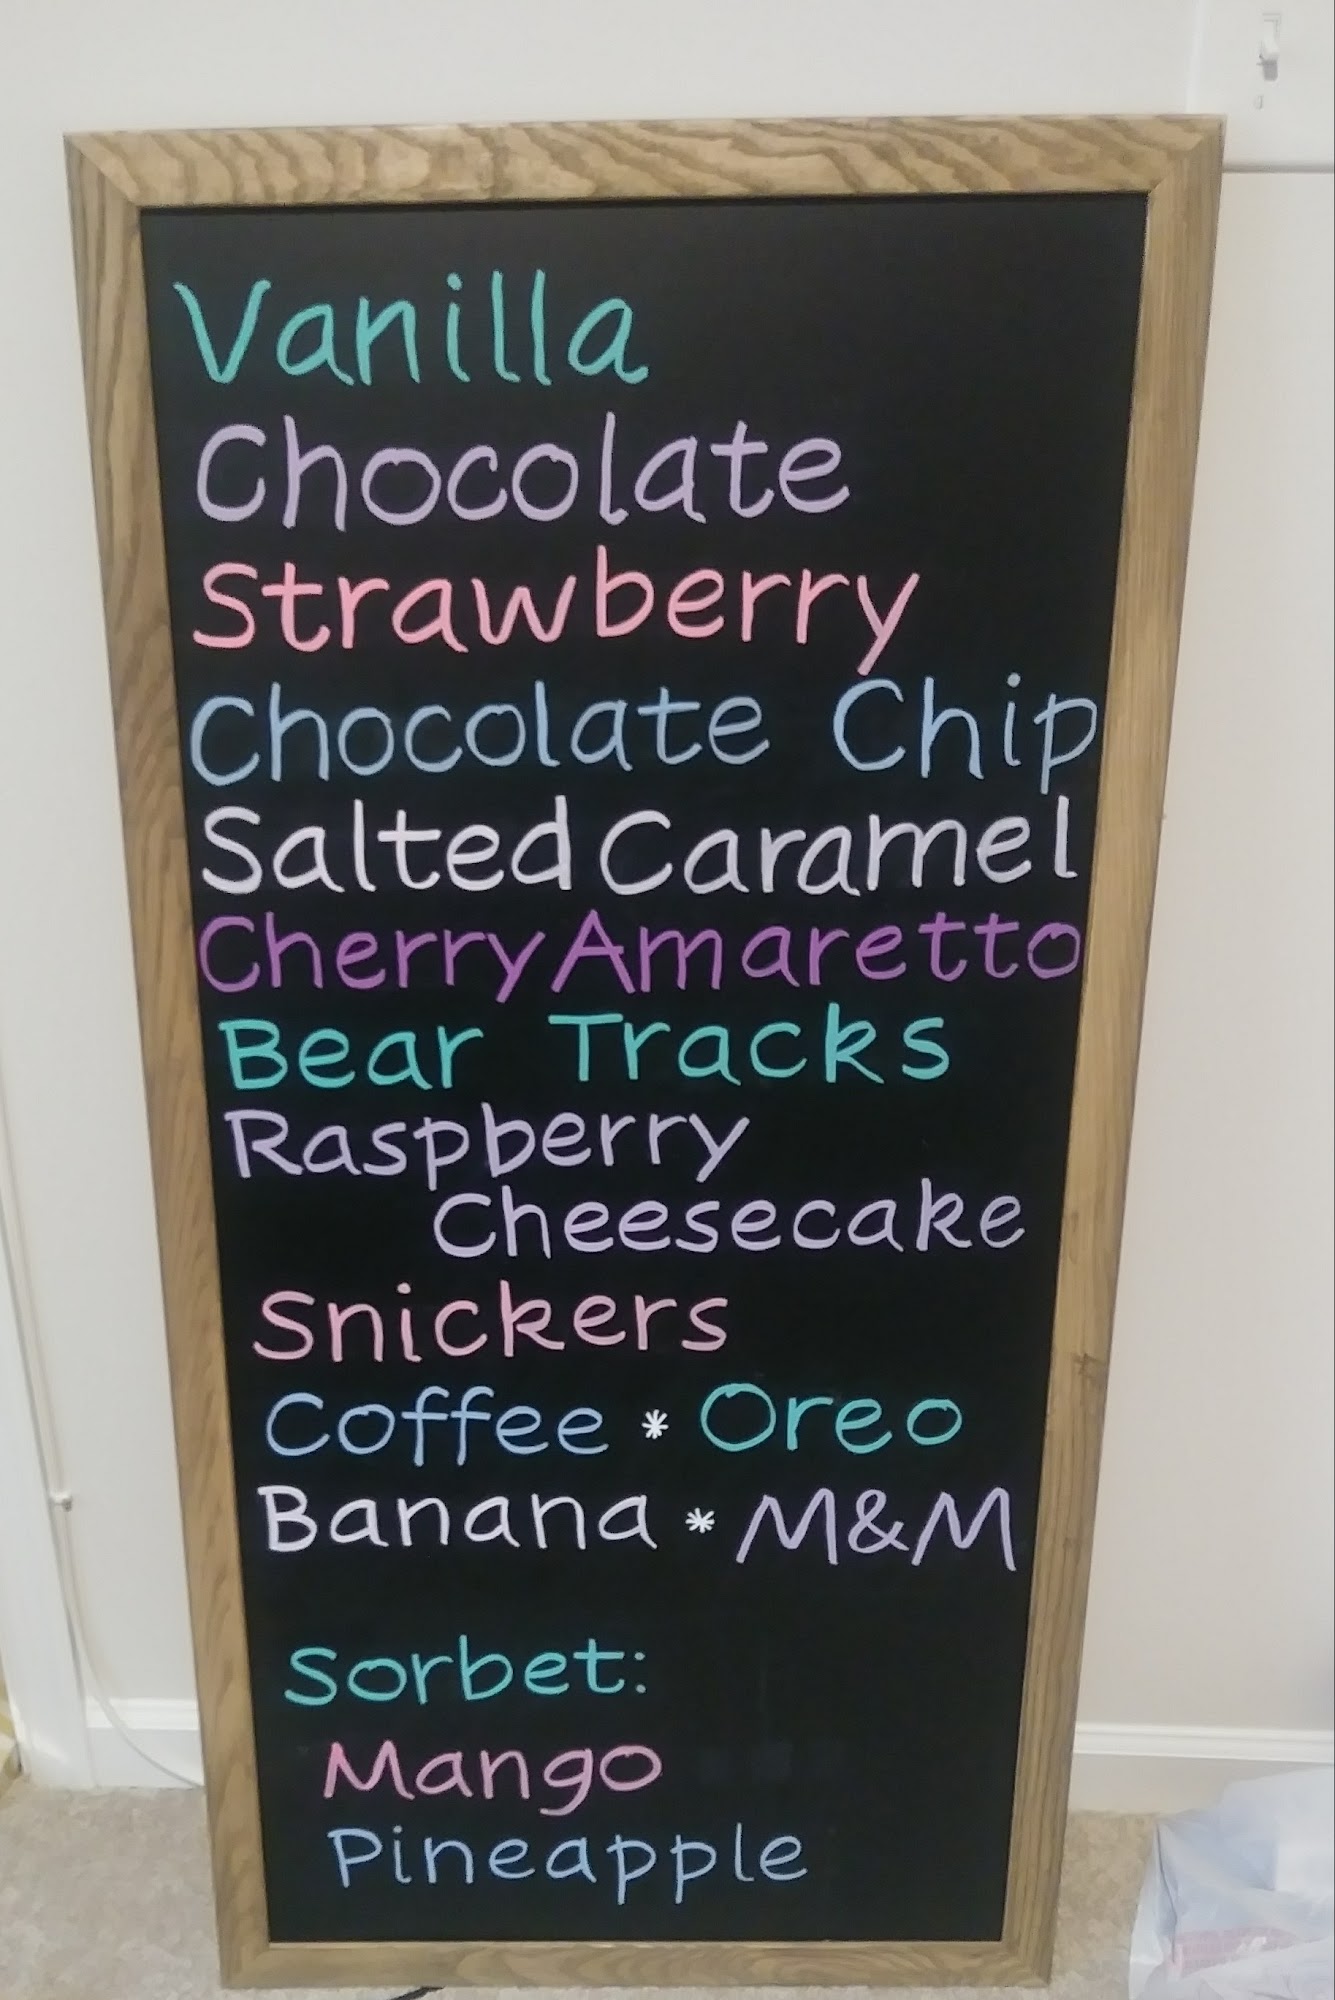 Vanilla
Chocolate
Strawberry
Chocolate Chip
Salted Caramel
Cherry Amaretto
Bear Tracks
Raspberry
Cheesecake
Snickers
Coffee * Oreo
Banana * M&M
Sorbet:
Mango
Pineapple